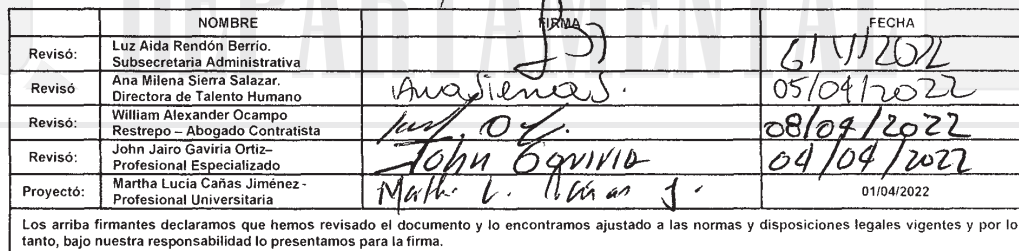 NOMBRE FIRMA FECHA
Revisó: Luz Aida Rendón Berrio.
Subsecretaria Administrativa
Revisó Ana Milena Sierra Salazar.
Directora de Talento Humano AnaSierraS. 05/04/2022
Revisó: William Alexander Ocampo
Restrepo – Abogado Contratista 08/04/2022
Revisó: John Jairo Gaviria Ortiz–
Profesional Especializado John Gaviria 04/04/2022
Proyectó: Martha Lucía Cañas Jiménez -
Profesional Universitaria 01/04/2022
Los arriba firmantes declaramos que hemos revisado el documento y lo encontramos ajustado a las normas y disposiciones legales vigentes y por lo
tanto, bajo nuestra responsabilidad lo presentamos para la firma.